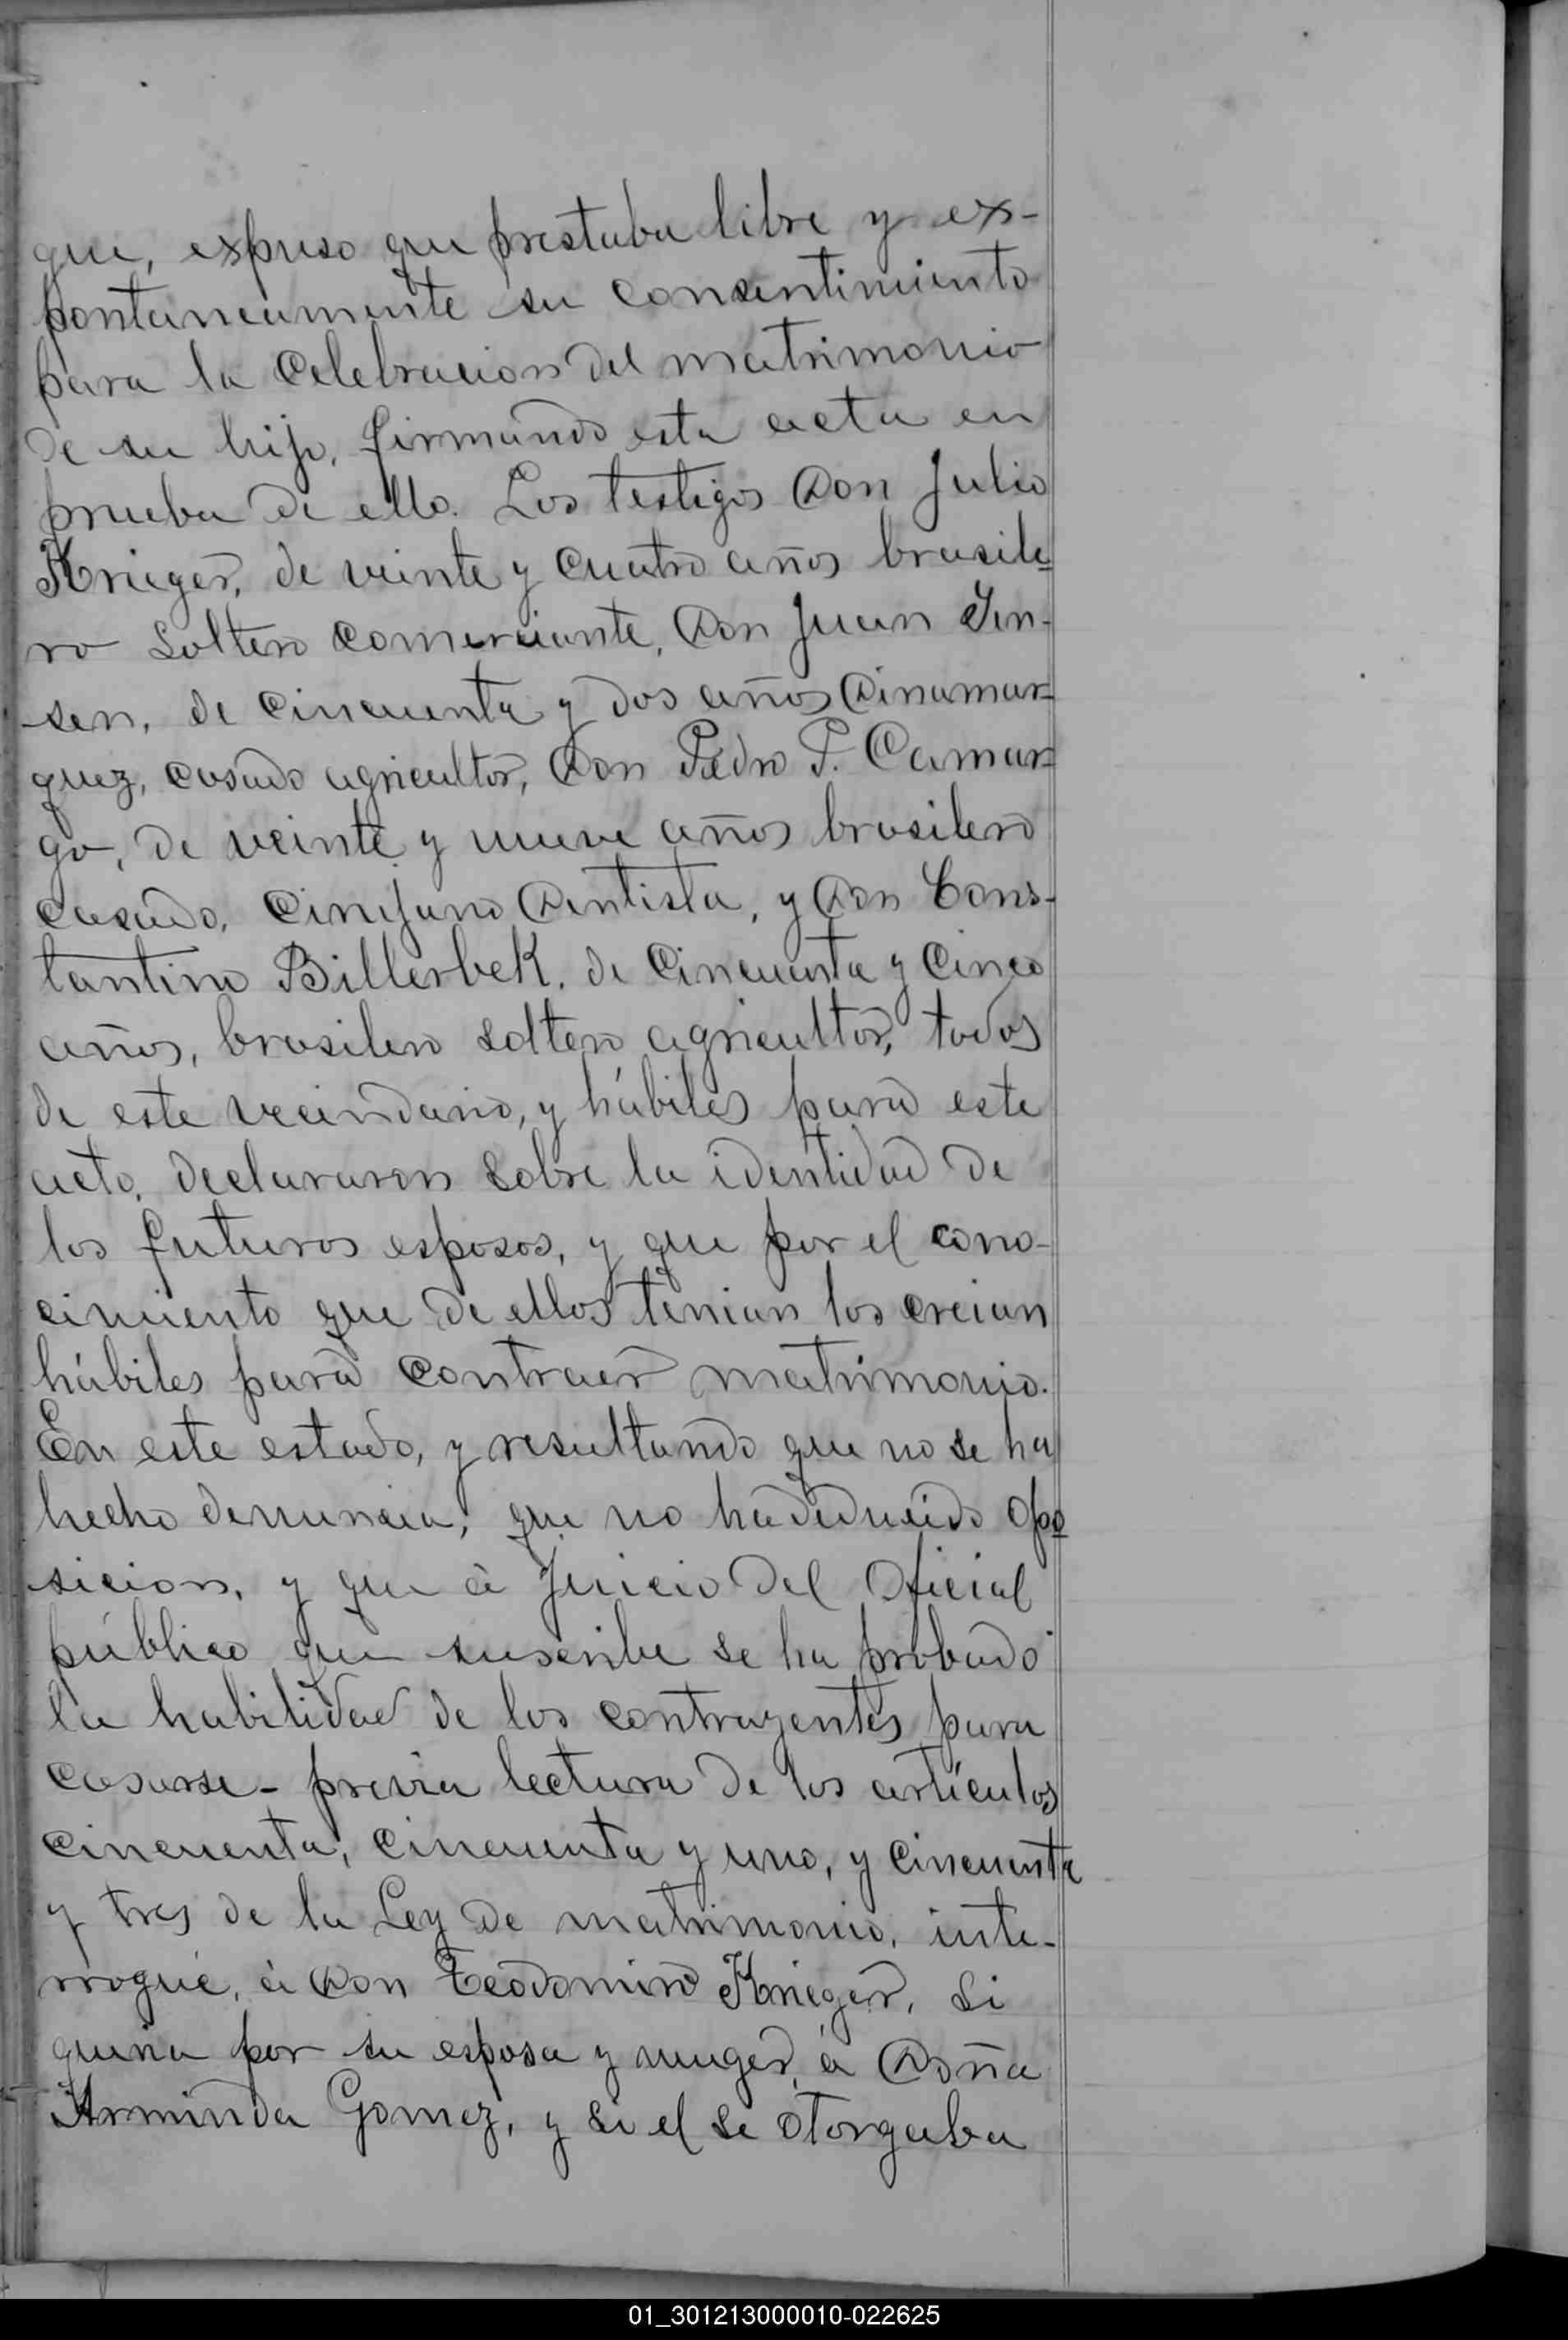 que, espuso que prestaba libre y ex-
pontaneamente su consentimiento
para la celebracion del matrimonio
de su hijo, firmando esta acta en
prueba de ello. Los testigos Don Julio
Krieger, de veinte y cuatro años brasile
ro soltero comerciante, Don Juan Jen-
sen, de cincuenta y dos años Dinamar=
quez, casado agricultor, Don Pedro P. Camar=
go, de veinte y nueve años brasilero
casado, Cirujano Dentista, y Don Cons-
tantino Billerbek, de cincuenta y cinco
años, brasilero soltero agricultor, todos
de este vecindario, y hábiles para este
acto, declararon sobre la identidad de
los futuros esposos, y que por el cono-
cimiento que de ellos tenian los creian
hábiles para contraer matrimonio.
En este estado, y resultando que no se ha
hecho denuncia, que no ha deducido opo
sicion, y que á juicio del Oficial
público que suscribe se ha probado
la habilidad de los contrayentes para
casarse - previa lectura de los artículos
cincuenta, cincuenta y uno, y cincuenta
y tres de la Ley de matrimonio, inte-
rrogué, á Don Teodomiro Krieger, si
queria por su esposa y muger, á Doña
Arminda Gomez, y si el se otorgaba
01_301213000010-022625